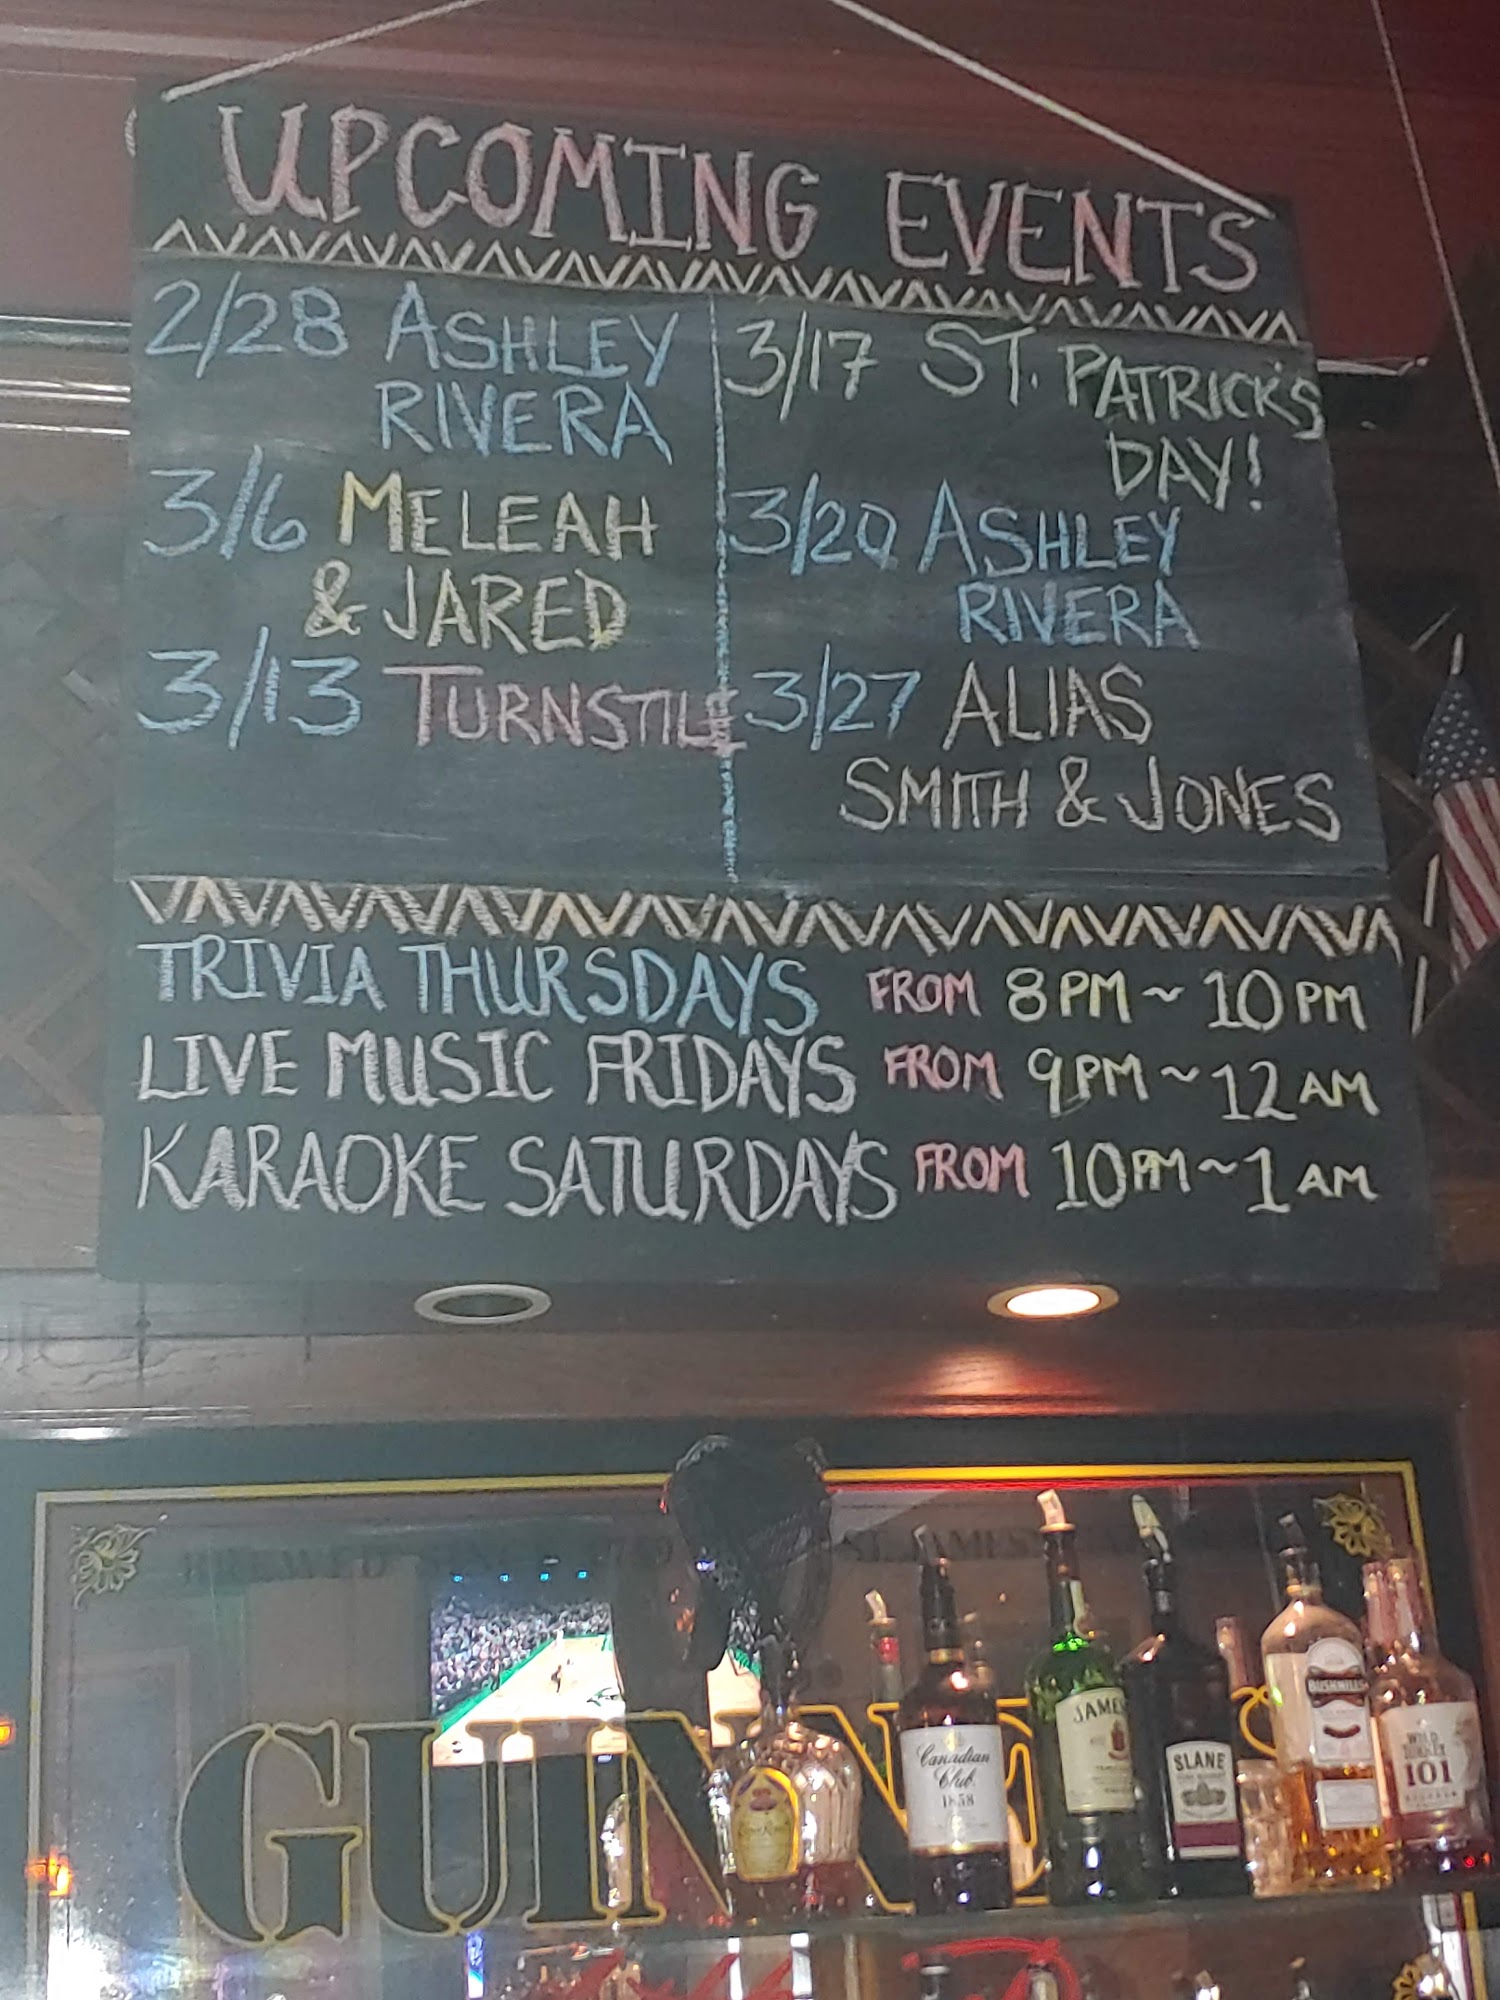 UPCOMING EVENTS
2/28 ASHLEY
RIVERA
3/6 MELEAH
& JARED
3/13 TURNSTILE
3/17 ST. PATRICK'S
DAY!
3/20 ASHLEY
RIVERA
3/27 ALIAS
SMITH & JONES
TRIVIA THURSDAYS FROM 8PM~10PM
LIVE MUSIC FRIDAYS FROM 9PM~12AM
KARAOKE SATURDAYS FROM 10PM~1AM
BREWED ST. JAMES'S
GUINNE
Canadian
Club
1858
JAMES
SLANE
BUSHMILLS
WILD
TURKEY
101